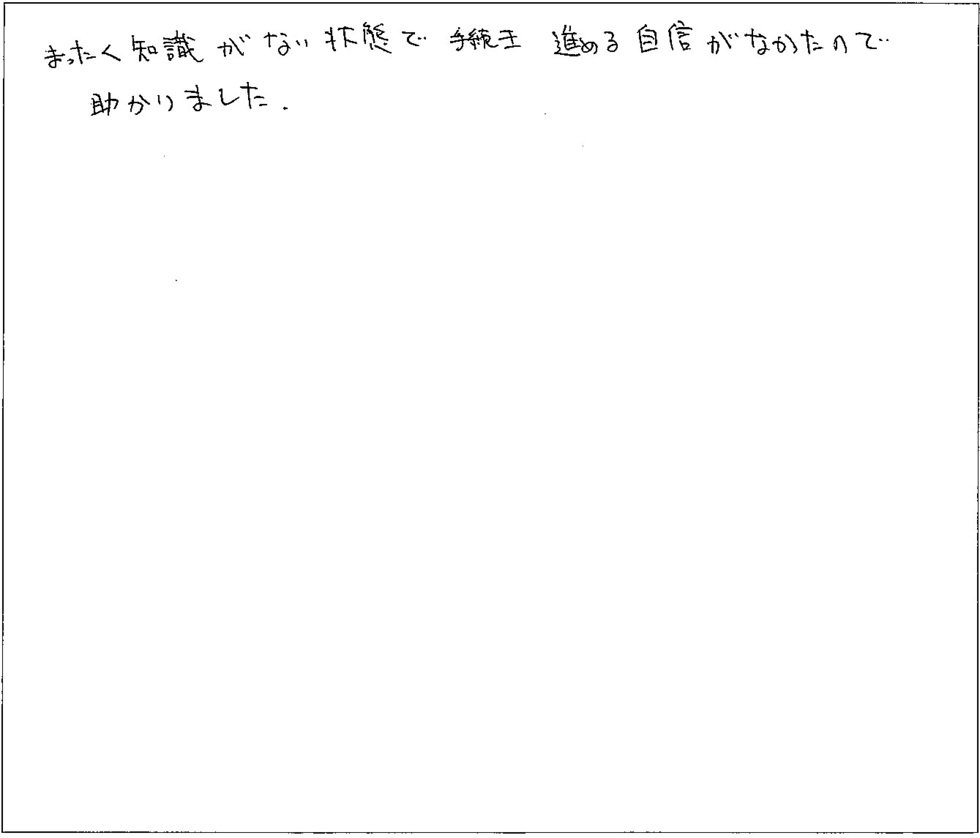 まったく知識がない状態で 手続き 進める自信がなかたので
助かりました.